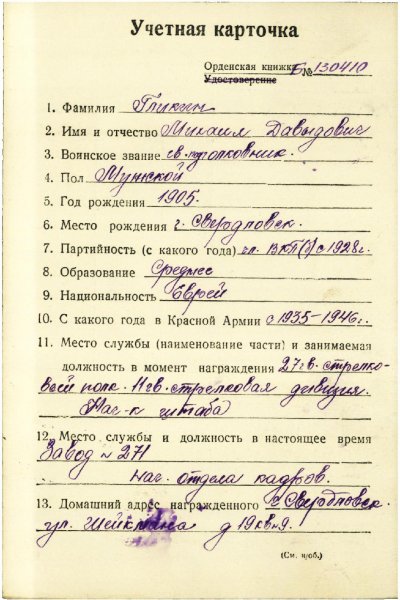 Учетная карточка
Орденская книжка Б №130410
Удостоверение
1. Фамилия Гликин
2. Имя и отчество Михаил Давыдович
3. Воинское звание гв. подполковник.
4. Пол Мужской
5. Год рождения 1905.
6. Место рождения г. Свердловск.
7. Партийность (с какого года) чл. ВКП(б) с 1928г.
8. Образование Среднее
9. Национальность Еврей
10. С какого года в Красной Армии с 1935-1946г.
11. Место службы (наименование части) и занимаемая
должность в момент награждения 27гв. стрелко-
вый полк. 11гв. стрелковая дивизия.
Нач-к штаба
12. Место службы и должность в настоящее время
Завод № 271
нач. отдела кадров.
13. Домашний адрес награжденного г. Свердловск.
ул. Шейкмана д 19 кв 9.
(См. н/об.)